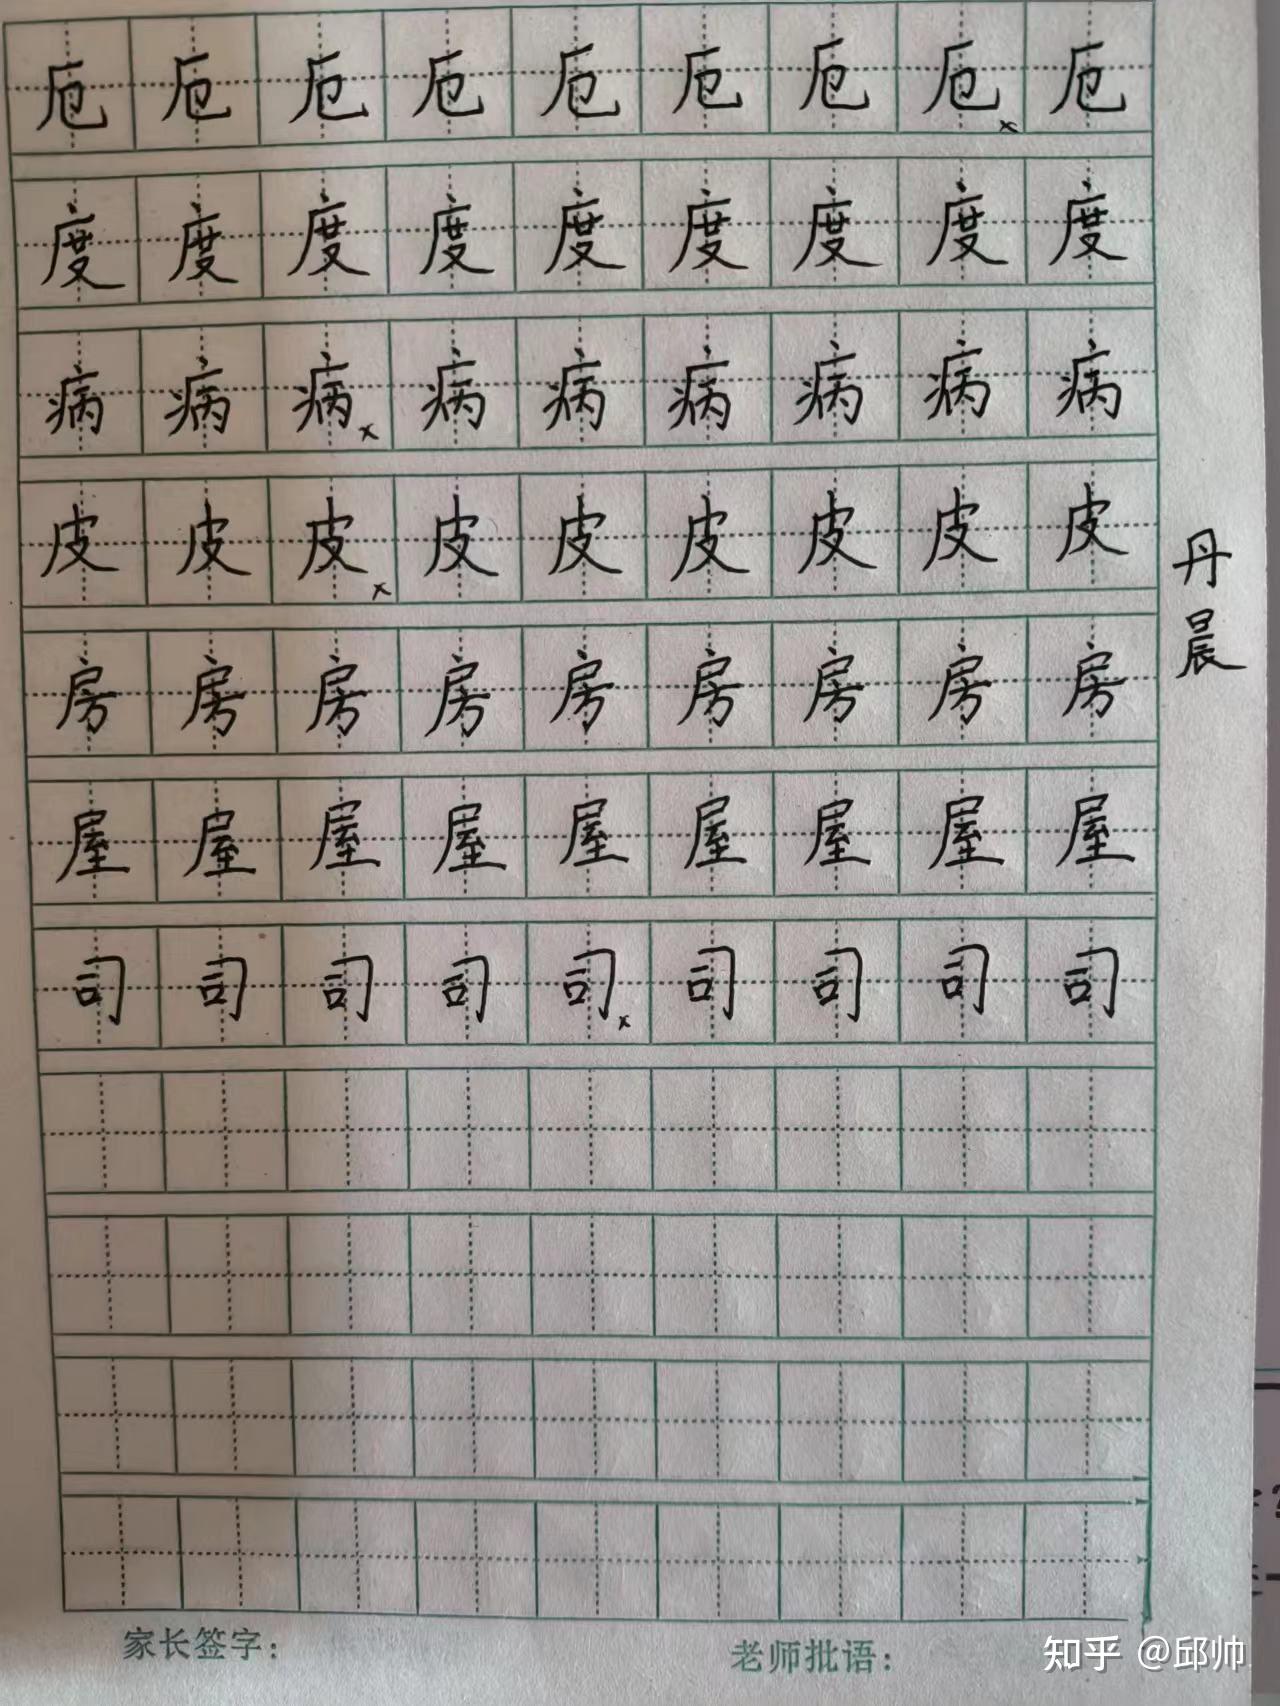 厄厄厄厄厄厄厄厄厄
度度度度度度度度度
病病病病病病病病病
皮皮皮皮皮皮皮皮皮
房房房房房房房房房
屋屋屋屋屋屋屋屋屋
司司司司司司司司司
丹晨
家长签字： 老师批语：
知乎 @邱帅